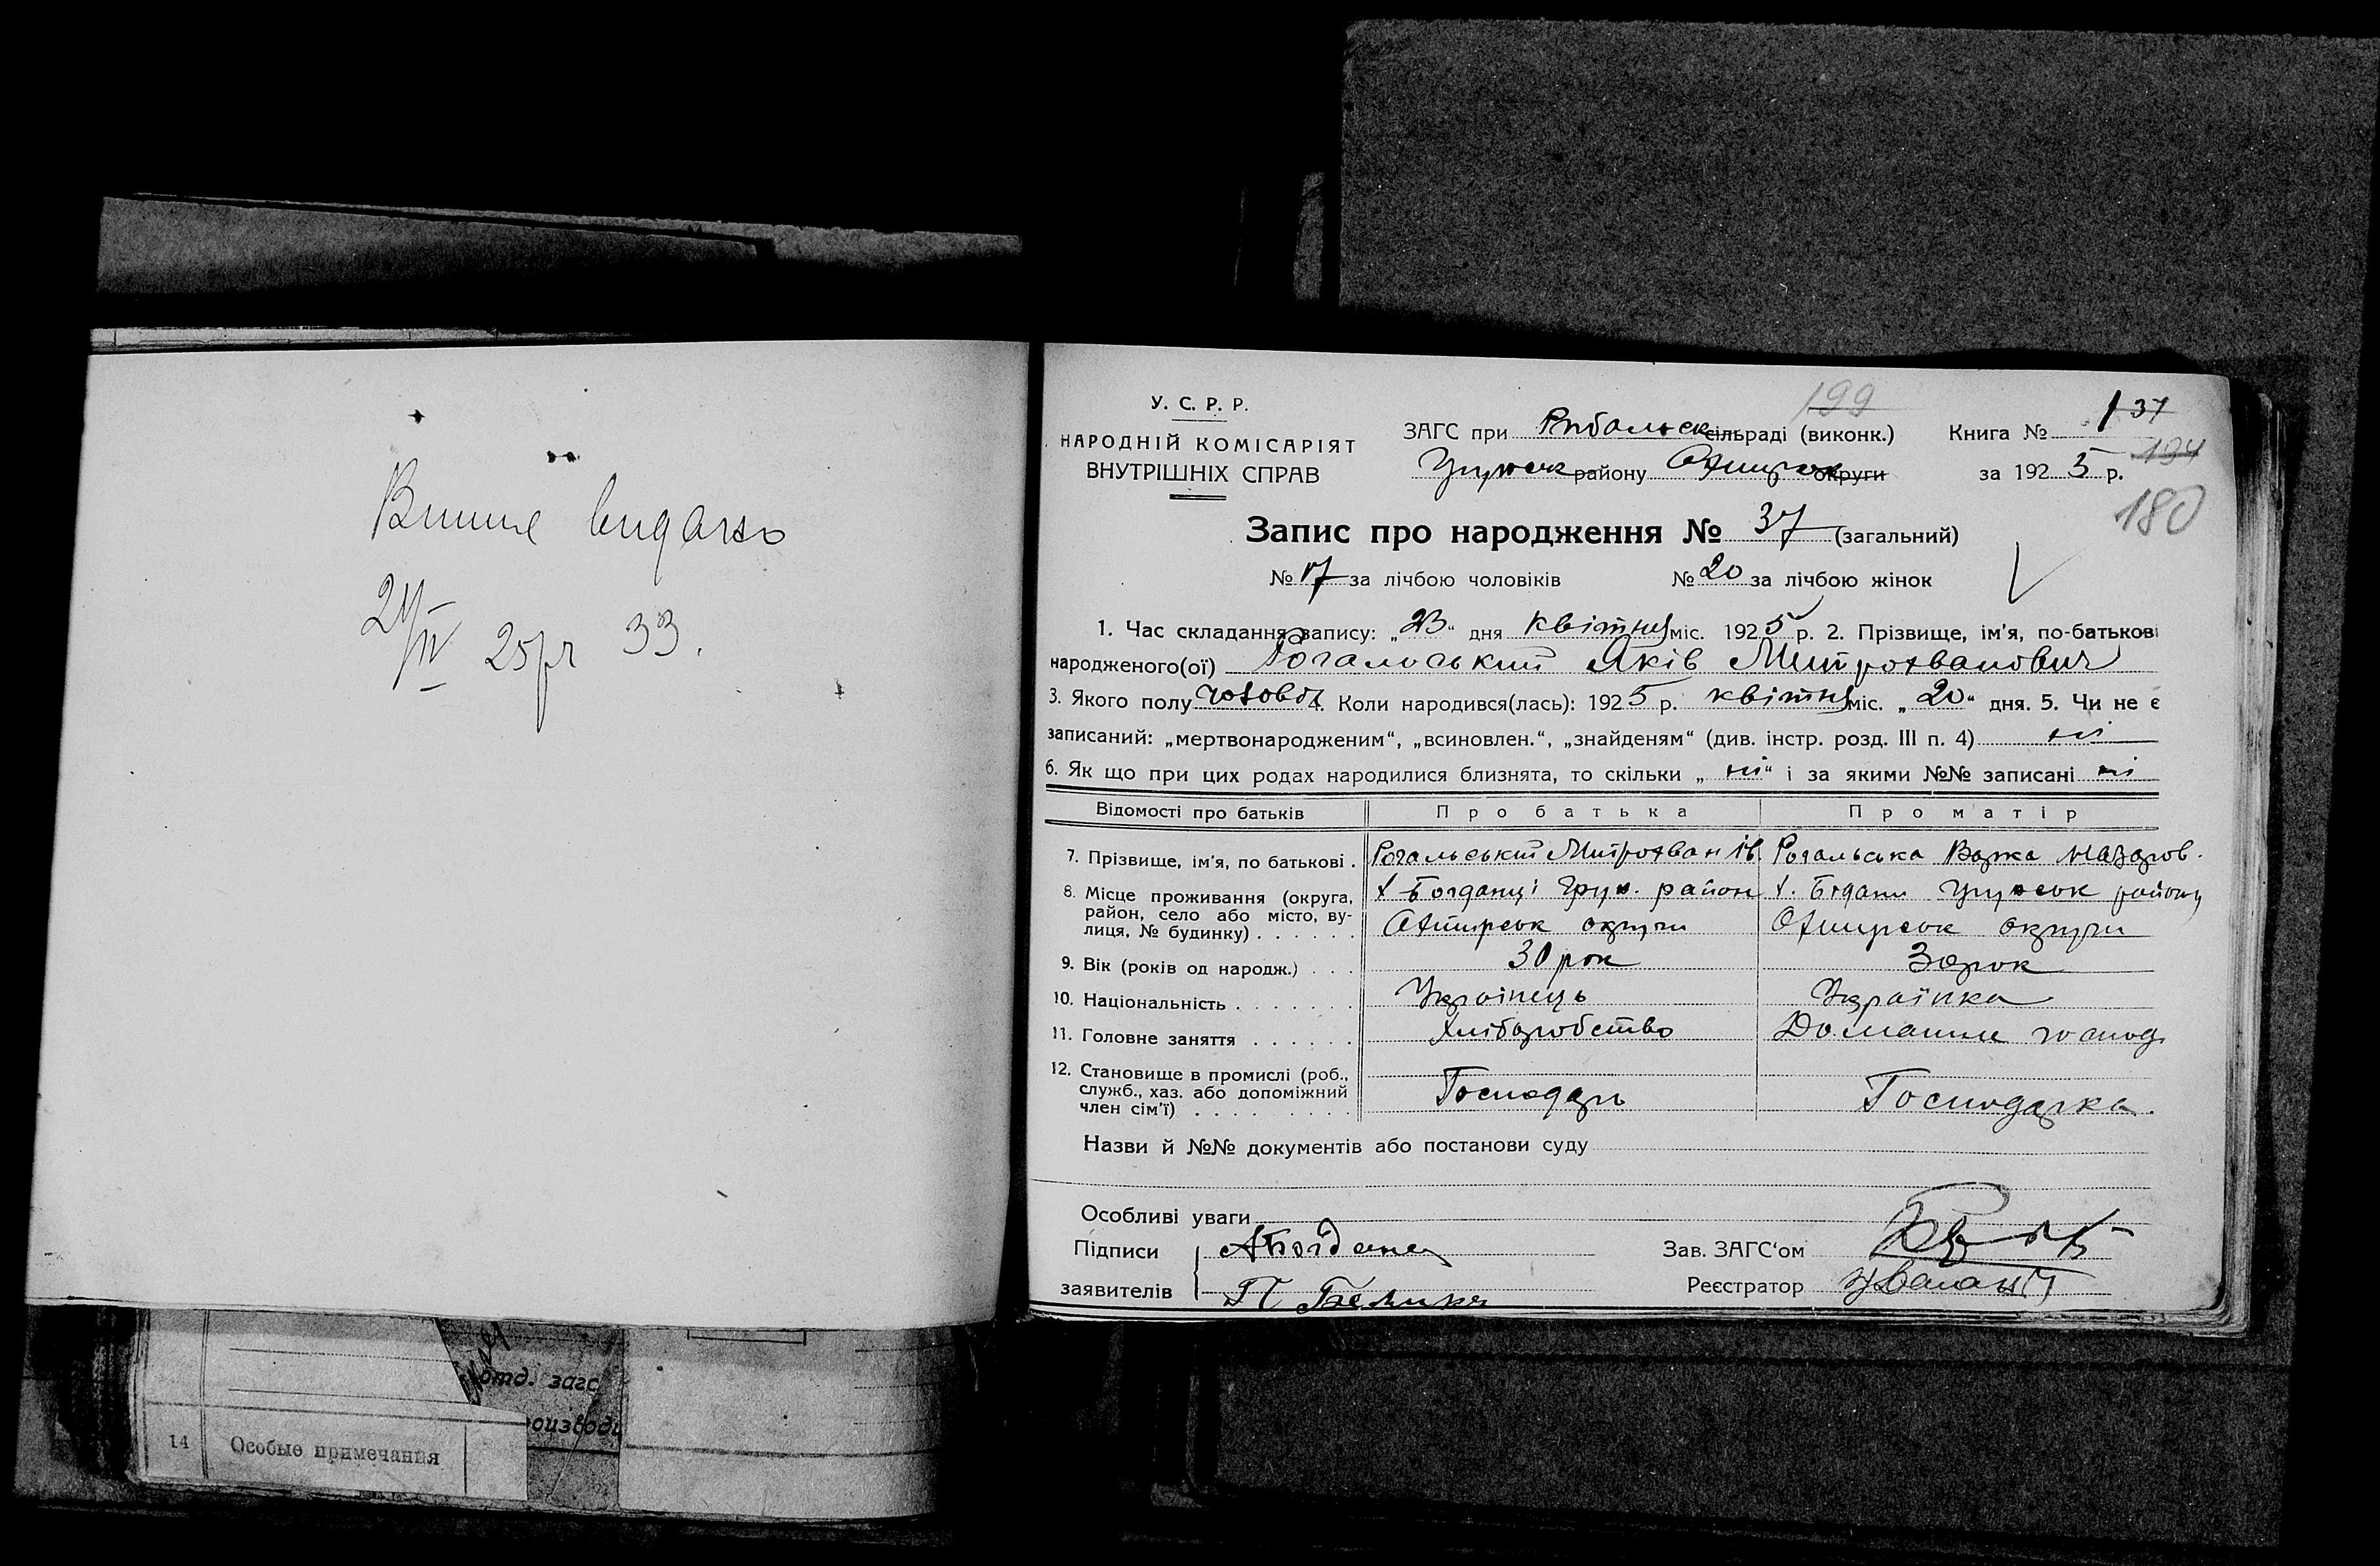 Випис видано
24/IV 25 р. 33.
отд. загс
14 Особые примечания
У. С. Р. Р.
НАРОДНІЙ КОМІСАРІЯТ
ВНУТРІШНІХ СПРАВ
199
ЗАГС при Рибальск сільраді (виконк.)
Книга № 1 37
району Охтирськ округи
за 192 5 р.
194
180
Запис про народження № 37 (загальний)
№ 17 за лічбою чоловіків № 20 за лічбою жінок
1. Час складання запису: „23“ дня квітня міс. 1925 р. 2. Прізвище, ім'я, по-батькові
народженого(ої) Рогальський Яків Митрохванович
3. Якого полу чолов 4. Коли народився(лась): 1925 р. квітня міс. „20“ дня. 5. Чи не є
записаний: „мертвонародженим“, „всиновлен.“, „знайденям“ (див. інстр. розд. III п. 4) ні
6. Як що при цих родах народилися близнята, то скільки „ні“ і за якими №№ записані ні
Відомості про батьків Про батька Про матір
7. Прізвище, ім'я, по батькові . Рогальський Митрохван Ів. Рогальська Варка Назаров.
8. Місце проживання (округа, район, село або місто, вулиця, № будинку) . . . . . .
х Богданці Грун. район
Охтирськ округи
х. Богдани район
Охтирськ округи
9. Вік (років од народж.) . . . 30 рок 30 рок
10. Національність . . . . . . . Українець Українка
11. Головне заняття . . . . . . Хліборобство Домашнє господ.
12. Становище в промислі (роб., служб., хаз. або допоміжний член сім'ї) . . . . . . . . .
Господарь Господарка.
Назви й №№ документів або постанови суду
Особливі уваги
Підписи
заявителів
Зав. ЗАГС'ом
Реєстратор